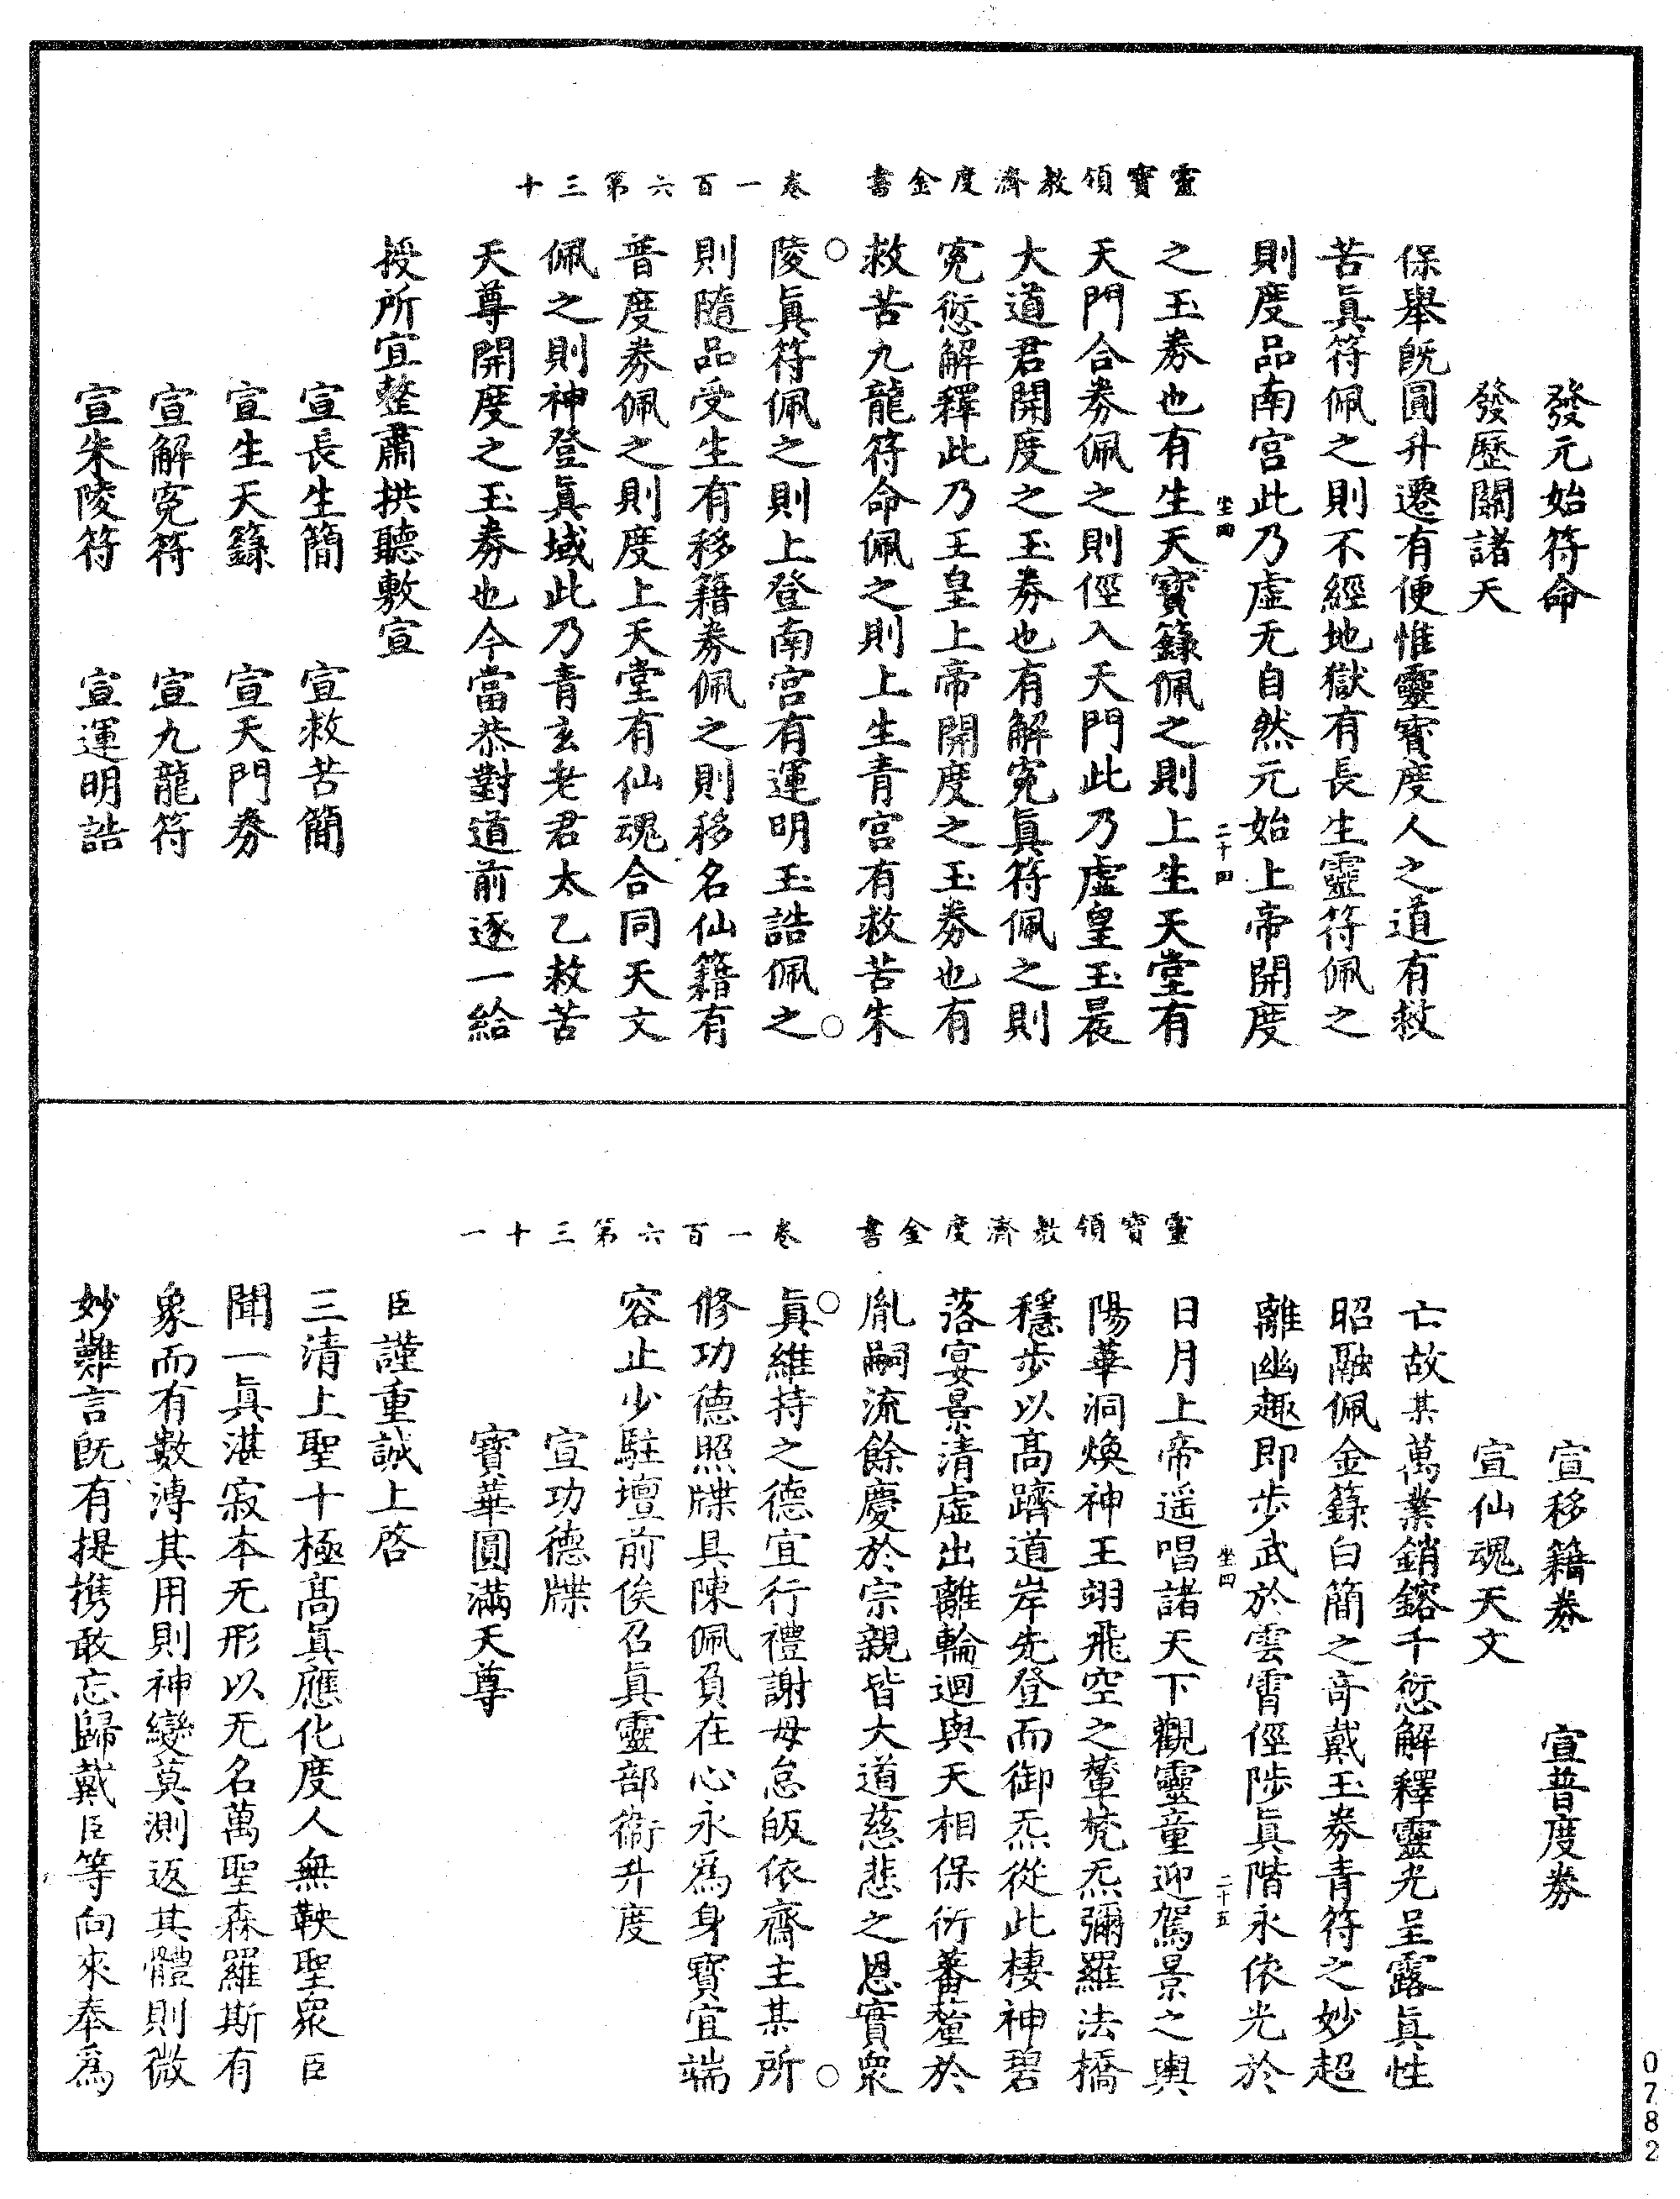 靈寶領教濟度金書　卷一百六第三十
發元始符命
發歷關諸天
保舉既圓升遷有便惟靈寶度人之道有救
苦眞符佩之則不經地獄有長生靈符佩之
則度品南宮此乃虛无自然元始上帝開度
坐四　二十四
之玉劵也有生天寶籙佩之則上生天堂有
天門合劵佩之則徑入天門此乃虛皇玉晨
大道君開度之玉劵也有解寃眞符佩之則
寃愆解釋此乃王皇上帝開度之玉劵也有
救苦九龍符命佩之則上生青宮有救苦朱
陵眞符佩之則上登南宮有運明玉誥佩之
則隨品受生有移籍劵佩之則移名仙籍有
普度劵佩之則度上天堂有仙魂合同天文
佩之則神登眞域此乃青玄老君太乙救苦
天尊開度之玉劵也今當恭對道前逐一給
授所宜整肅拱聽敷宣
宣長生簡　宣救苦簡
宣生天籙　宣天門劵
宣解寃符　宣九龍符
宣朱陵符　宣運明誥
靈寶領教濟度金書　卷一百六第三十一
宣移籍劵　宣普度劵
宣仙魂天文
亡故某萬業銷鎔千愆解釋靈光呈露眞性
昭融佩金籙白簡之奇戴玉劵青符之妙超
離幽趣即步武於雲霄徑陟眞階永依光於
坐四　二十五
日月上帝遥唱諸天下觀靈童迎駕景之輿
陽華洞煥神王翊飛空之輦梵炁彌羅法橋
穩步以高躋道岸先登而御炁從此棲神碧
落宴景清虛出離輪迴與天相保衍蕃釐於
胤嗣流餘慶於宗親皆大道慈悲之恩實衆
眞維持之德宜行禮謝毋怠皈依齋主某所
修功德照牒具陳佩負在心永爲身寳宜端
容止少駐壇前俟召眞靈部衛升度
宣功德牒
寳華圓滿天尊
臣謹重誠上啓
三清上聖十極高眞應化度人無鞅聖衆臣
聞一眞湛寂本无形以无名萬聖森羅斯有
象而有數溥其用則神變莫測返其體則微
妙難言既有提携敢忘歸戴臣等向來奉爲
0782